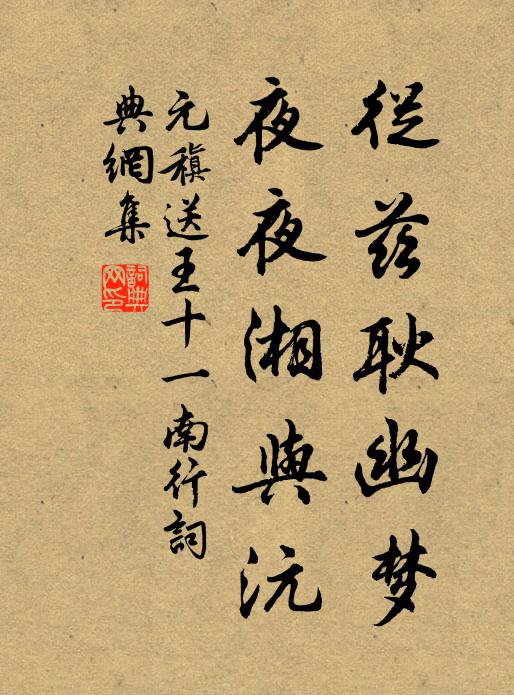 從茲耿幽梦
夜夜湘與沅
元稹送王十一南行詞
典網集
詞典網印